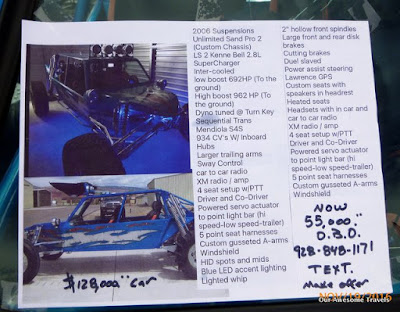 2006 Suspensions
Unlimited Sand Pro 2
(Custom Chassis)
LS 2 Kenne Bell 2.8L
SuperCharger
Inter-cooled
low boost 692HP (To the
ground)
High boost 962 HP (To
the ground)
Dyno tuned @ Turn Key
Sequential Trans
Mendiola S4S
934 CV's W/ Inboard
Hubs
Larger trailing arms
Sway Control
car to car radio
XM radio / amp
4 seat setup w/PTT
Driver and Co-Driver
Powered servo actuator
to point light bar (hi
speed-low speed-trailer)
5 point seat harnesses
Custom gusseted A-arms
Windshield
HID spots and mids
Blue LED accent lighting
Lighted whip
2" hollow front spindles
Large front and rear disk
brakes
Cutting brakes
Duel slaved
Power assist steering
Lawrence GPS
Custom seats with
speakers in headrest
Heated seats
Headsets with in car and
car to car radio
XM radio / amp
4 seat setup w/PTT
Driver and Co-Driver
Powered servo actuator
to point light bar (hi
speed-low speed-trailer)
5 point seat harnesses
Custom gusseted A-arms
Windshield
NOW
55,000.00
O.B.O.
928-848-1171
TEXT.
Make offer
$128,000.00 car
NOV/12/2016
Our Awesome Travels